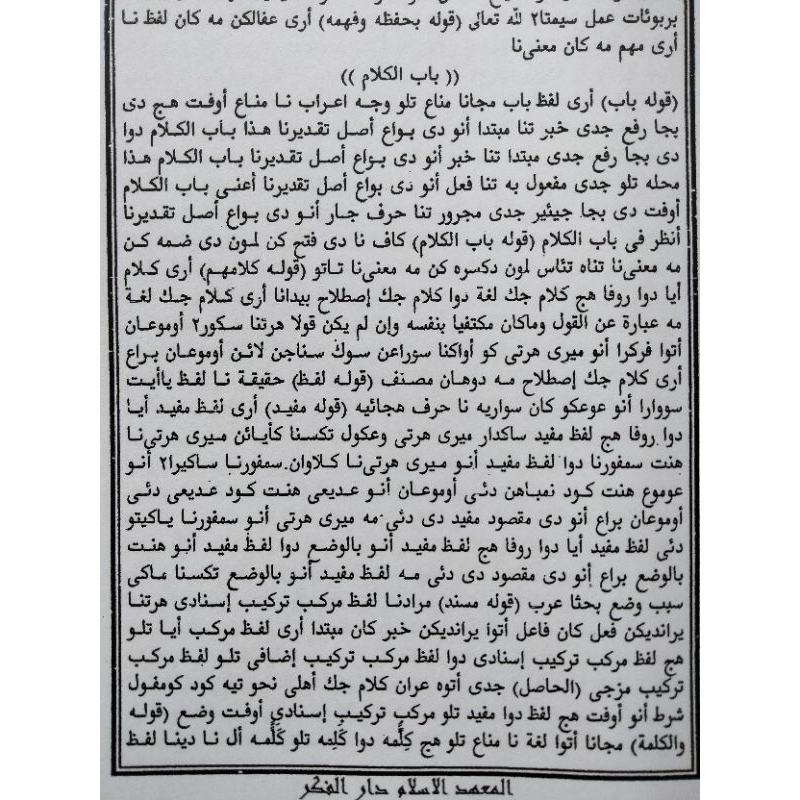 بربوئات عمل سيمتا٢ لله تعالى (قوله بحفظه وفهمه) أرى عفالكن مه كان لفظ نا
أرى مهم مه كان معنى‌نا
(( باب الكلام ))
(قوله باب) أرى لفظ باب مجانا مناع تلو وجه اعراب نا مناع أوفت هج دى
بجا رفع جدى خبر تنا مبتدا أنو دى بواع أصل تقديرنا هذا باب الكلام دوا
دى بجا رفع جدى مبتدا تنا خبر أنو دى بواع أصل تقديرنا باب الكلام هذا
محله تلو جدى مفعول به تنا فعل أنو دى بواع أصل تقديرنا أعنى باب الكلام
أوفت دى بجا جيئير جدى مجرور تنا حرف جار أنو دى بواع أصل تقديرنا
أنظر فى باب الكلام (قوله باب الكلام) كاف نا دى فتح كن لمون دى ضمه كن
مه معنى‌نا تناه تئاس لمون دكسره كن مه معنى‌نا تاتو (قوله كلامهم) أرى كلام
أيا دوا روفا هج كلام جك لغة دوا كلام جك إصطلاح بيدانا أرى كلام جك لغة
مه عبارة عن القول وماكان مكتفيا بنفسه وإن لم يكن قولا هرتنا سكور٢ أوموعان
أتوا فركرا أنو ميرى هرتى كو أواكنا سوراعن سوك سناجن لائن أوموعان براع
أرى كلام جك إصطلاح مه دوهان مصنف (قوله لفظ) حقيقة نا لفظ يأايت
سووارا أنو عوعكو كان سواريه نا حرف هجائيه (قوله مفيد) أرى لفظ مفيد أيا
دوا روفا هج لفظ مفيد ساكدار ميرى هرتى وعكول تكسنا كأيائن ميرى هرتى‌نا
هنت سمفورنا دوا لفظ مفيد أنو ميرى هرتى‌نا كلاوان سمفورنا ساكيرا٢ أنو
عوموع هنت كود نمباهن دئى أوموعان أنو عديعى هنت كود عديعى دئى
أوموعان براع أنو دى مقصود مفيد دى دئى مه ميرى هرتى أنو سمفورنا ياكيتو
دئى لفظ مفيد أيا دوا روفا هج لفظ مفيد أنو بالوضع دوا لفظ مفيد أنو هنت
بالوضع براع أنو دى مقصود دى دئى مه لفظ مفيد أنو بالوضع تكسنا ماكى
سبب وضع بحثا عرب (قوله مسند) مرادنا لفظ مركب تركيب إسنادى هرتنا
يرانديكن فعل كان فاعل أتوا يرانديكن خبر كان مبتدا أرى لفظ مركب أيا تلو
هج لفظ مركب تركيب إسنادى دوا لفظ مركب تركيب إضافى تلو لفظ مركب
تركيب مزجى (الحاصل) جدى أتوه عران كلام جك أهلى نحو تيه كود كومفول
شرط أنو أوفت هج لفظ دوا مفيد تلو مركب تركيب إسنادى أوفت وضع (قوله
والكلمة) مجانا أتوا لغة نا مناع تلو هج كِلْمه دوا كَلِمه تلو كَلْمه أل نا دينا لفظ
المعهد الاسلام دار الفكر